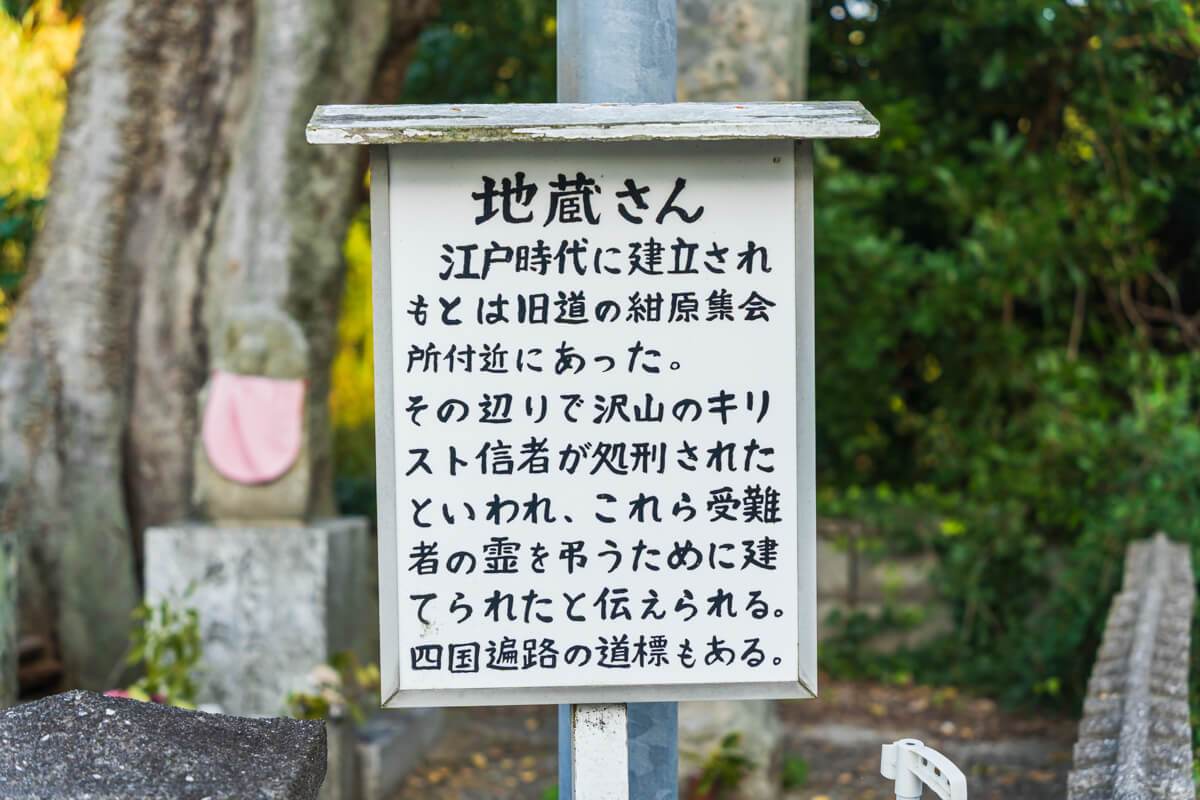 地蔵さん
江戸時代に建立され
もとは旧道の紺原集会
所付近にあった。
その辺りで沢山のキリ
スト信者が処刑された
といわれ、これら受難
者の霊を弔うために建
てられたと伝えられる。
四国遍路の道標もある。